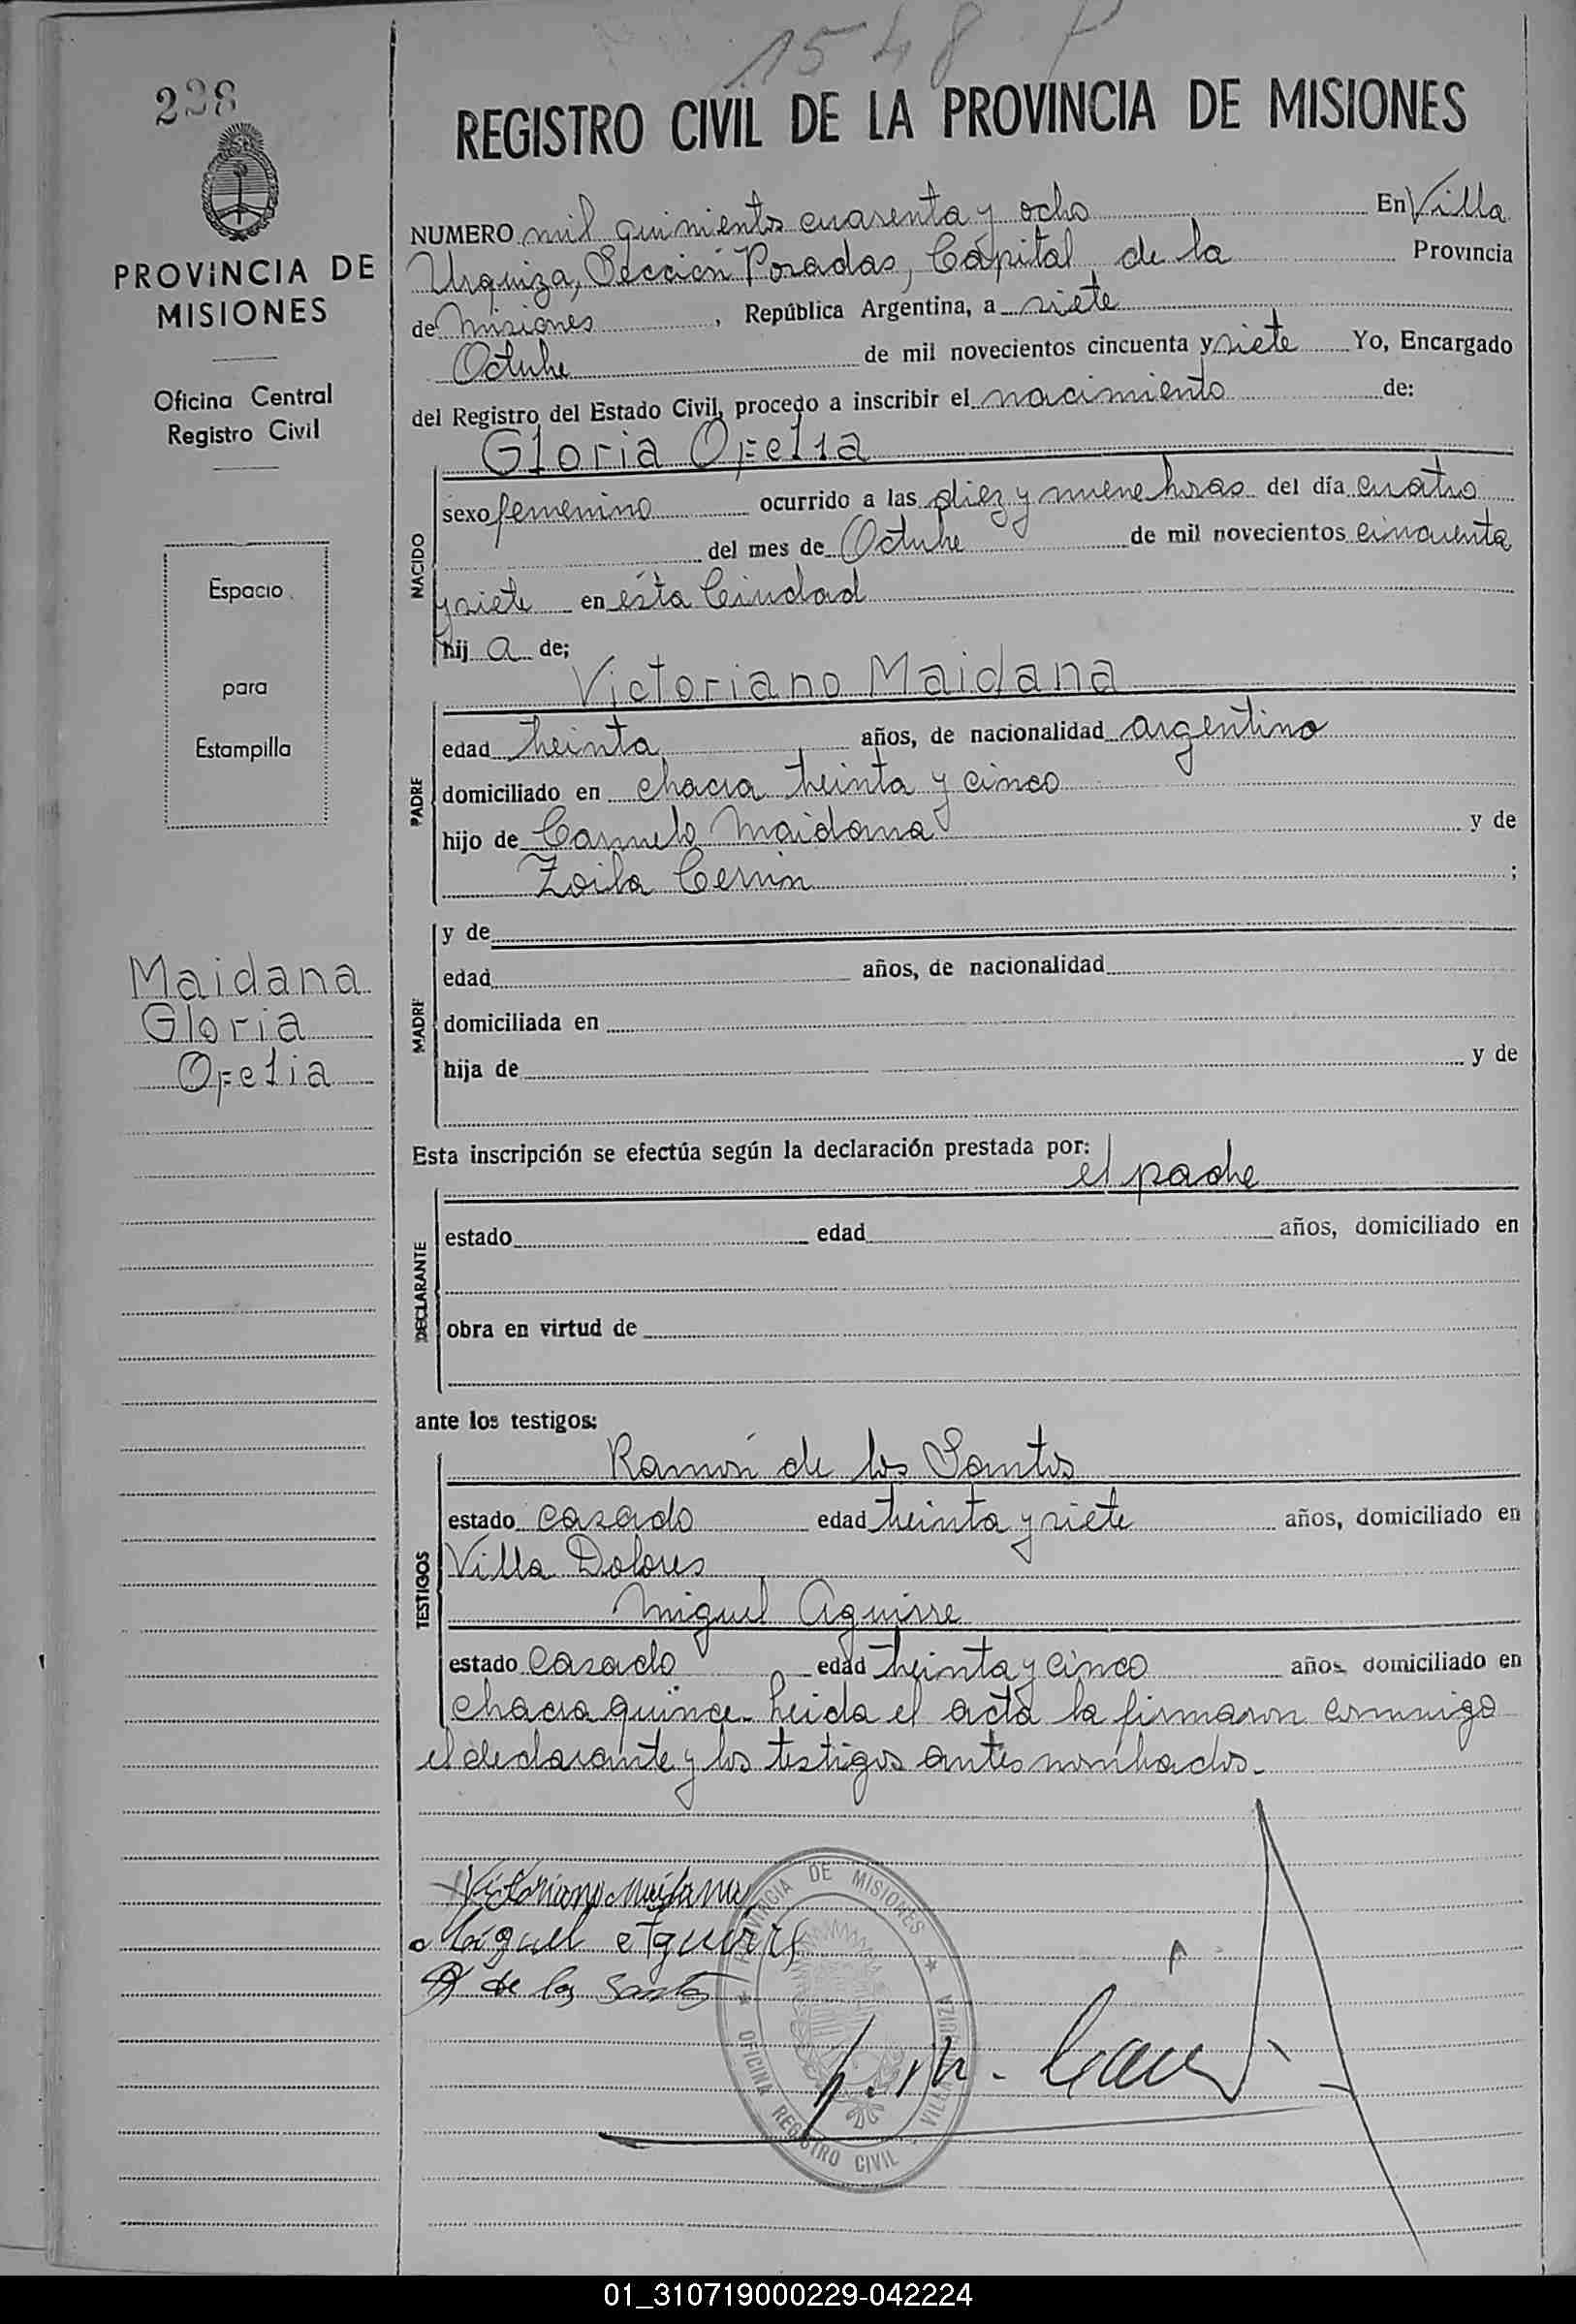 1548
298
REGISTRO CIVIL DE LA PROVINCIA DE MISIONES
PROVINCIA DE
MISIONES
Oficina Central
Registro Civil
Espacio
para
Estampilla
Maidana
Gloria
Ofelia
NUMERO mil quinientos cuarenta y ocho En Villa
Urquiza, Sección Posadas, Cápital de la Provincia
de Misiones, República Argentina, a siete
Octubre de mil novecientos cincuenta y siete Yo, Encargado
del Registro del Estado Civil, procedo a inscribir el nacimiento de:
Gloria Ofelia
NACIDO
sexo femenino ocurrido a las diez y nueve horas del día cuatro
del mes de Octubre de mil novecientos cincuenta
y siete en ésta Ciudad
hij a de;
Victoriano Maidana
PADRE
edad treinta años, de nacionalidad argentino
domiciliado en chacra treinta y cinco
hijo de Carmelo Maidana y de
Zoila ;
MADRE
y de
edad años, de nacionalidad
domiciliada en
hija de y de
Esta inscripción se efectúa según la declaración prestada por:
el padre
DECLARANTE
estado edad años, domiciliado en
obra en virtud de
ante los testigos:
Ramón de los Santos
TESTIGOS
estado casado edad treinta y siete años, domiciliado en
Villa Dolores
Miguel Aguirre
estado casado edad treinta y cinco años, domiciliado en
chacra quince. Leida el acta la firmaron conmigo
el declarante y los testigos antes nombrados.
Victoriano Maidana
Miguel Aguirre
R de los Santos
PROVINCIA DE MISIONES
OFICINA REGISTRO CIVIL VILLA URQUIZA
01_310719000229-042224